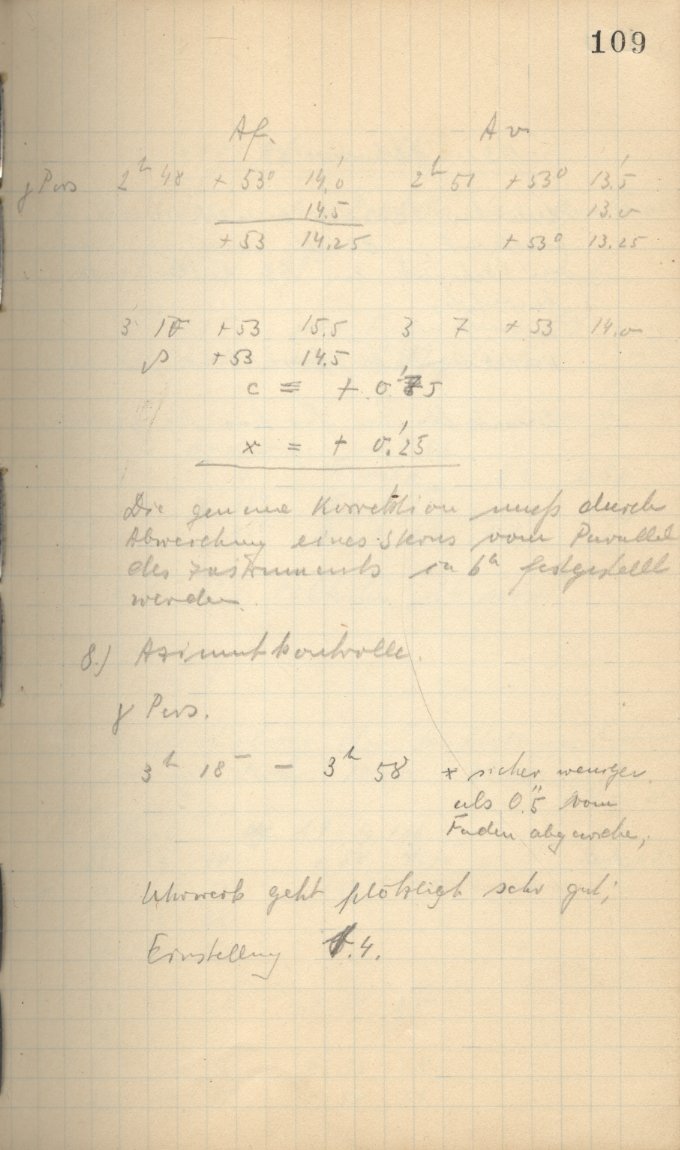 109
Af. Av
γ Pers 2h 48 + 53° 14.'0 2h 51 + 53° 13.'5
14.5 13.0
+ 53 14.25 + 53° 13.25
3 + 53 15.5 3 7 + 53 14.0
+ 53 14.5
c = + 0.'5
x = + 0.'25
Die genaue Korrektion muß durch
Abweichung eines Sterns vom Parallel
des Instruments in 6h festgestellt
werden.
8.) Azimutkontrolle.
γ Pers.
3h 18m – 3h 58 * sicher weniger
als 0."5 vom
Faden abgewichen;
Uhrwerk geht plötzlich sehr gut;
Einstellung .4.